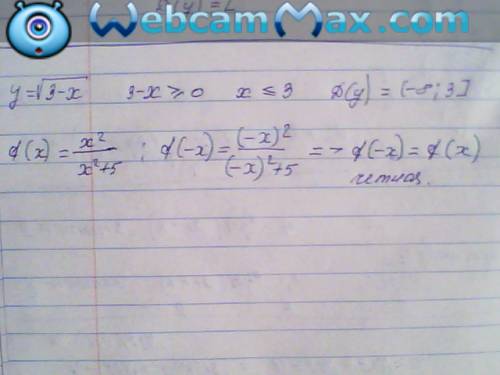 WebcamMax.com
y=√3-x 3-x ≥ 0 x ≤ 3 D(y) = (-∞; 3]
f(x) = x²/x²+5 ; f(-x) = (-x)²/(-x)²+5 => f(-x) = f(x)
четная.